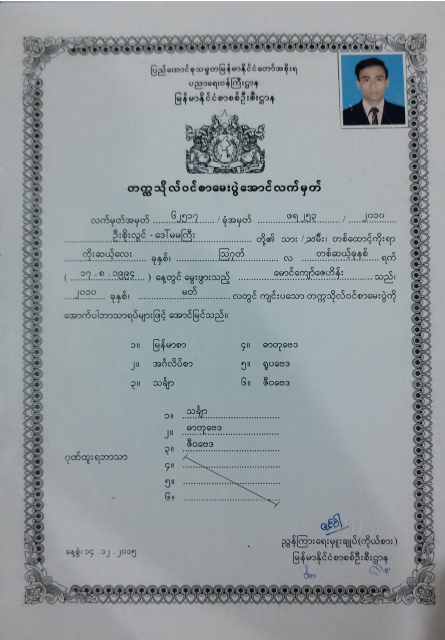 ပြည်ထောင်စုသမ္မတမြန်မာနိုင်ငံတော်အစိုးရ
ပညာရေးဝန်ကြီးဌာန
မြန်မာနိုင်ငံစာစစ်ဦးစီးဌာန
တက္ကသိုလ်ဝင်စာမေးပွဲအောင်လက်မှတ်
လက်မှတ်အမှတ် ၆၂၅၁၇ / ခုံအမှတ် ဖရ ၂၅၃ / ၂၀၁၀
ဦးစိုးလွင် - ဒေါ်မမကြီး တို့၏ သား / သမီး၊ တစ်ထောင့်ကိုးရာ
ကိုးဆယ့်လေး ခုနှစ်၊ ဩဂုတ် လ တစ်ဆယ့်ခုနှစ် ရက်
( ၁၇ . ၈ . ၁၉၉၄ ) နေ့တွင် မွေးဖွားသည့် မောင်ကျော်ဇေဟိန်း သည်၊
၂၀၁၀ ခုနှစ်၊ မတ် လတွင် ကျင်းပသော တက္ကသိုလ်ဝင်စာမေးပွဲကို
အောက်ပါဘာသာရပ်များဖြင့် အောင်မြင်သည်။
၁။ မြန်မာစာ ၄။ ဓာတုဗေဒ
၂။ အင်္ဂလိပ်စာ ၅။ ရူပဗေဒ
၃။ သင်္ချာ ၆။ ဇီဝဗေဒ
၁။ သင်္ချာ
၂။ ဓာတုဗေဒ
၃။ ဇီဝဗေဒ
ဂုဏ်ထူးရဘာသာ ၄။
၅။
၆။
ညွှန်ကြားရေးမှူးချုပ်(ကိုယ်စား)
နေ့စွဲ၊ ၁၄ . ၁၂ . ၂၀၁၅ မြန်မာနိုင်ငံစာစစ်ဦးစီးဌာန